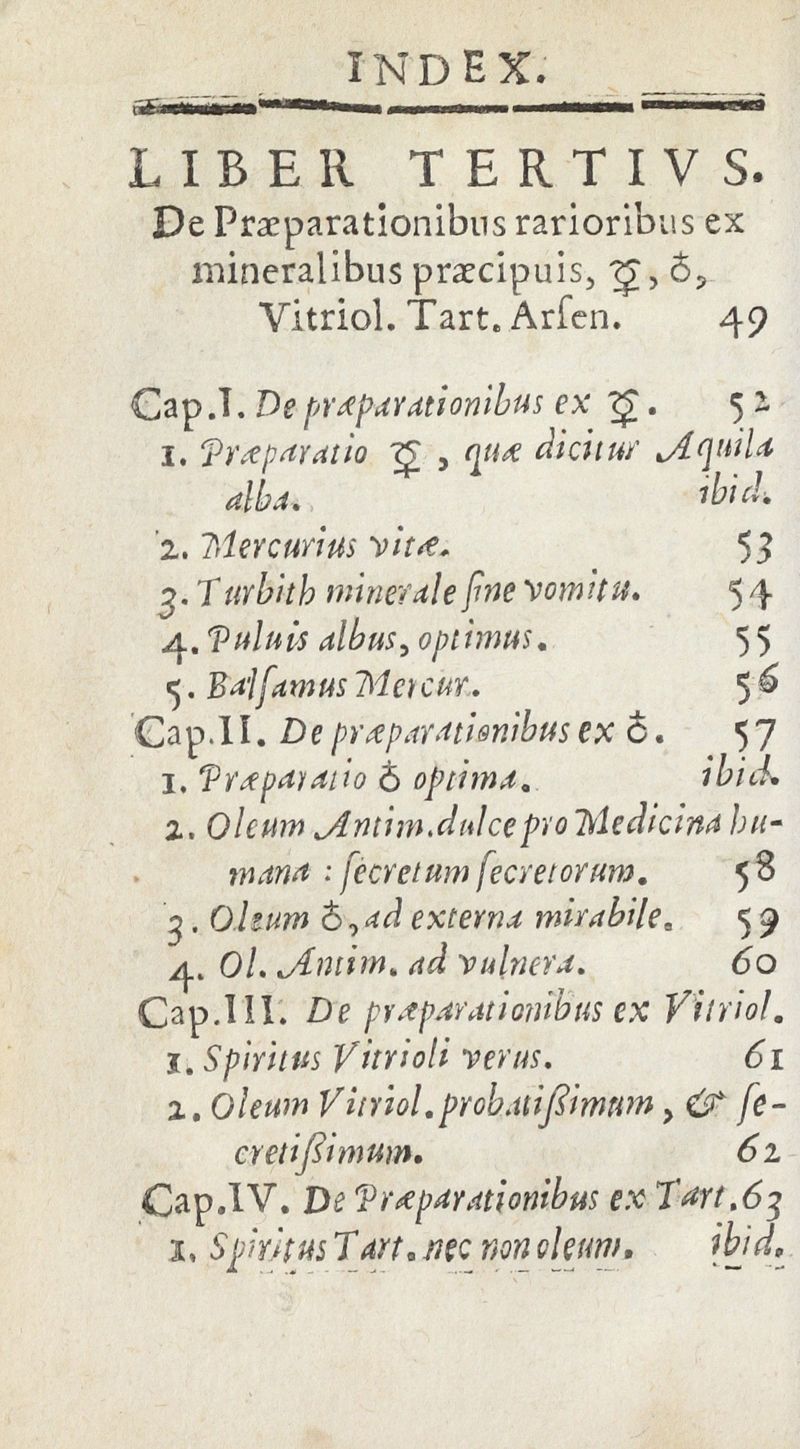 INDEX.
LIBER TERTIVS.
De Præparationibus rarioribus ex
mineralibus præcipuis, ☿, ♁,
Vitriol. Tart. Arſen. 49
Cap.I. De præparationibus ex ☿. 52
1. Præparatio ☿, quæ dicitur Aquila
alba. ibid.
2. Mercurius vitæ. 53
3. Turbith minerale ſine vomitu. 54
4. Puluis albus, optimus. 55
5. Balſamus Mercur. 56
Cap.II. De præparationibus ex ♁. 57
1. Præparatio ♁ optima. ibid.
2. Oleum Antim. dulce pro Medicina hu-
mana : ſecretum ſecretorum. 58
3. Oleum ♁, ad externa mirabile. 59
4. Ol. Antim. ad vulnera. 60
Cap.III. De præparationibus ex Vitriol.
1. Spiritus Vitrioli verus. 61
2. Oleum Vitriol. probatißimum, & ſe-
cretißimum. 62
Cap.IV. De Præparationibus ex Tart. 63
1. Spiritus Tart. nec non oleum. ibid.